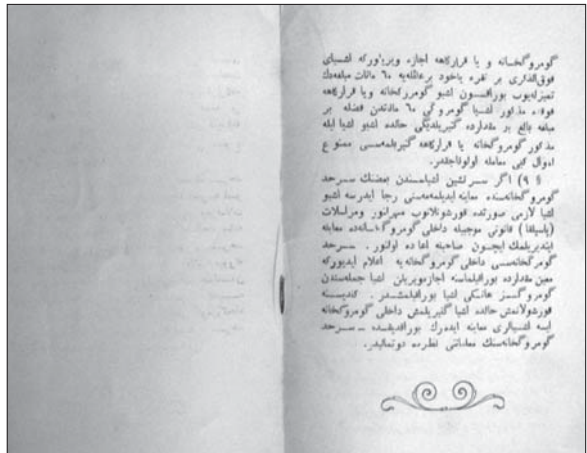 گومروگخانه و یا قرارکاهه اجازه ویریلورکه اشیای
فوق‌الذکری بر نفره یاخود بر عائله‌یه ٦٠ مانات مبلغه‌دك
بوراقسون اشبو گومرگخانه ویا قرارکاهه
مذکور اشیا گومروگی ٦٠ ماناتدن فضله بر
مبلغه بالغ بر مقدارده گتیریلدیگی حالده اشبو اشیا ایله
مذکور گومروگخانه یا قرارکاهه گتیریلمه‌سی ممنوع
اموال کبی معامله اولوناجقدر.
§ ٩) اگر اشیاسندن بعضیسنك سرحد
گومروگخانه‌سنده معاینه ایدیلمه‌مه‌سنی رجا ایدرسه اشبو
اشیا لازمی صورتده قورشونلانوب مهرلنور ومراسلات
قانونی موجبیله داخلی گومروگخانه‌ده معاینه
ایتدیرلمك ایچون صاحبنه اعاده اولنور. سرحد
گومرگخانه‌سی داخلی گومروگخانه‌یه اعلام ایدیورکه
معین مقدارده بوراقیلماسنه اجازه‌ویریلن اشیا جمله‌سندن
گومروگسز هانکی اشیا بوراقیلمشدر. کندیسنه
قورشونلانمش حالده اشیا گتیریلمش داخلی گومروگخانه
ایسه اشیالری معاینه ایدرك بوراقدیقده ـ سرحد
گومروگخانه‌سنك معلوماتنی نظرده دوتمالیدر.